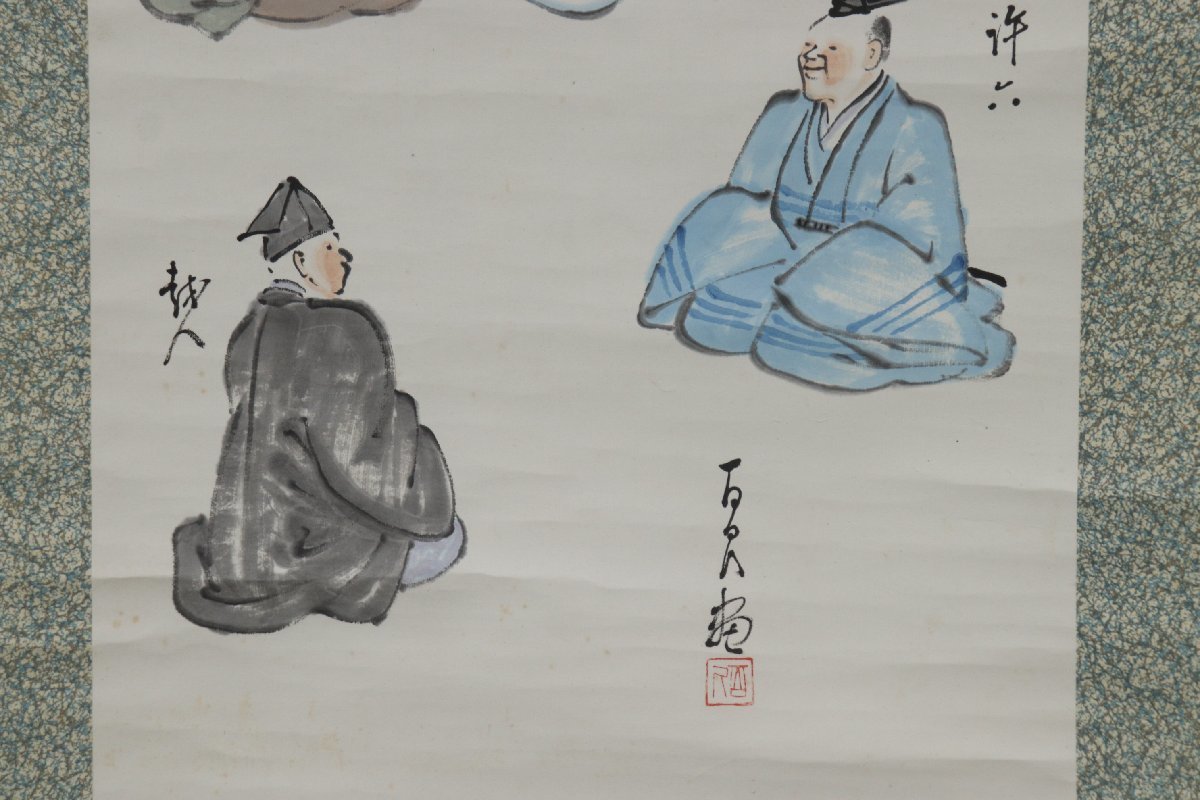 許六
越人
百 画